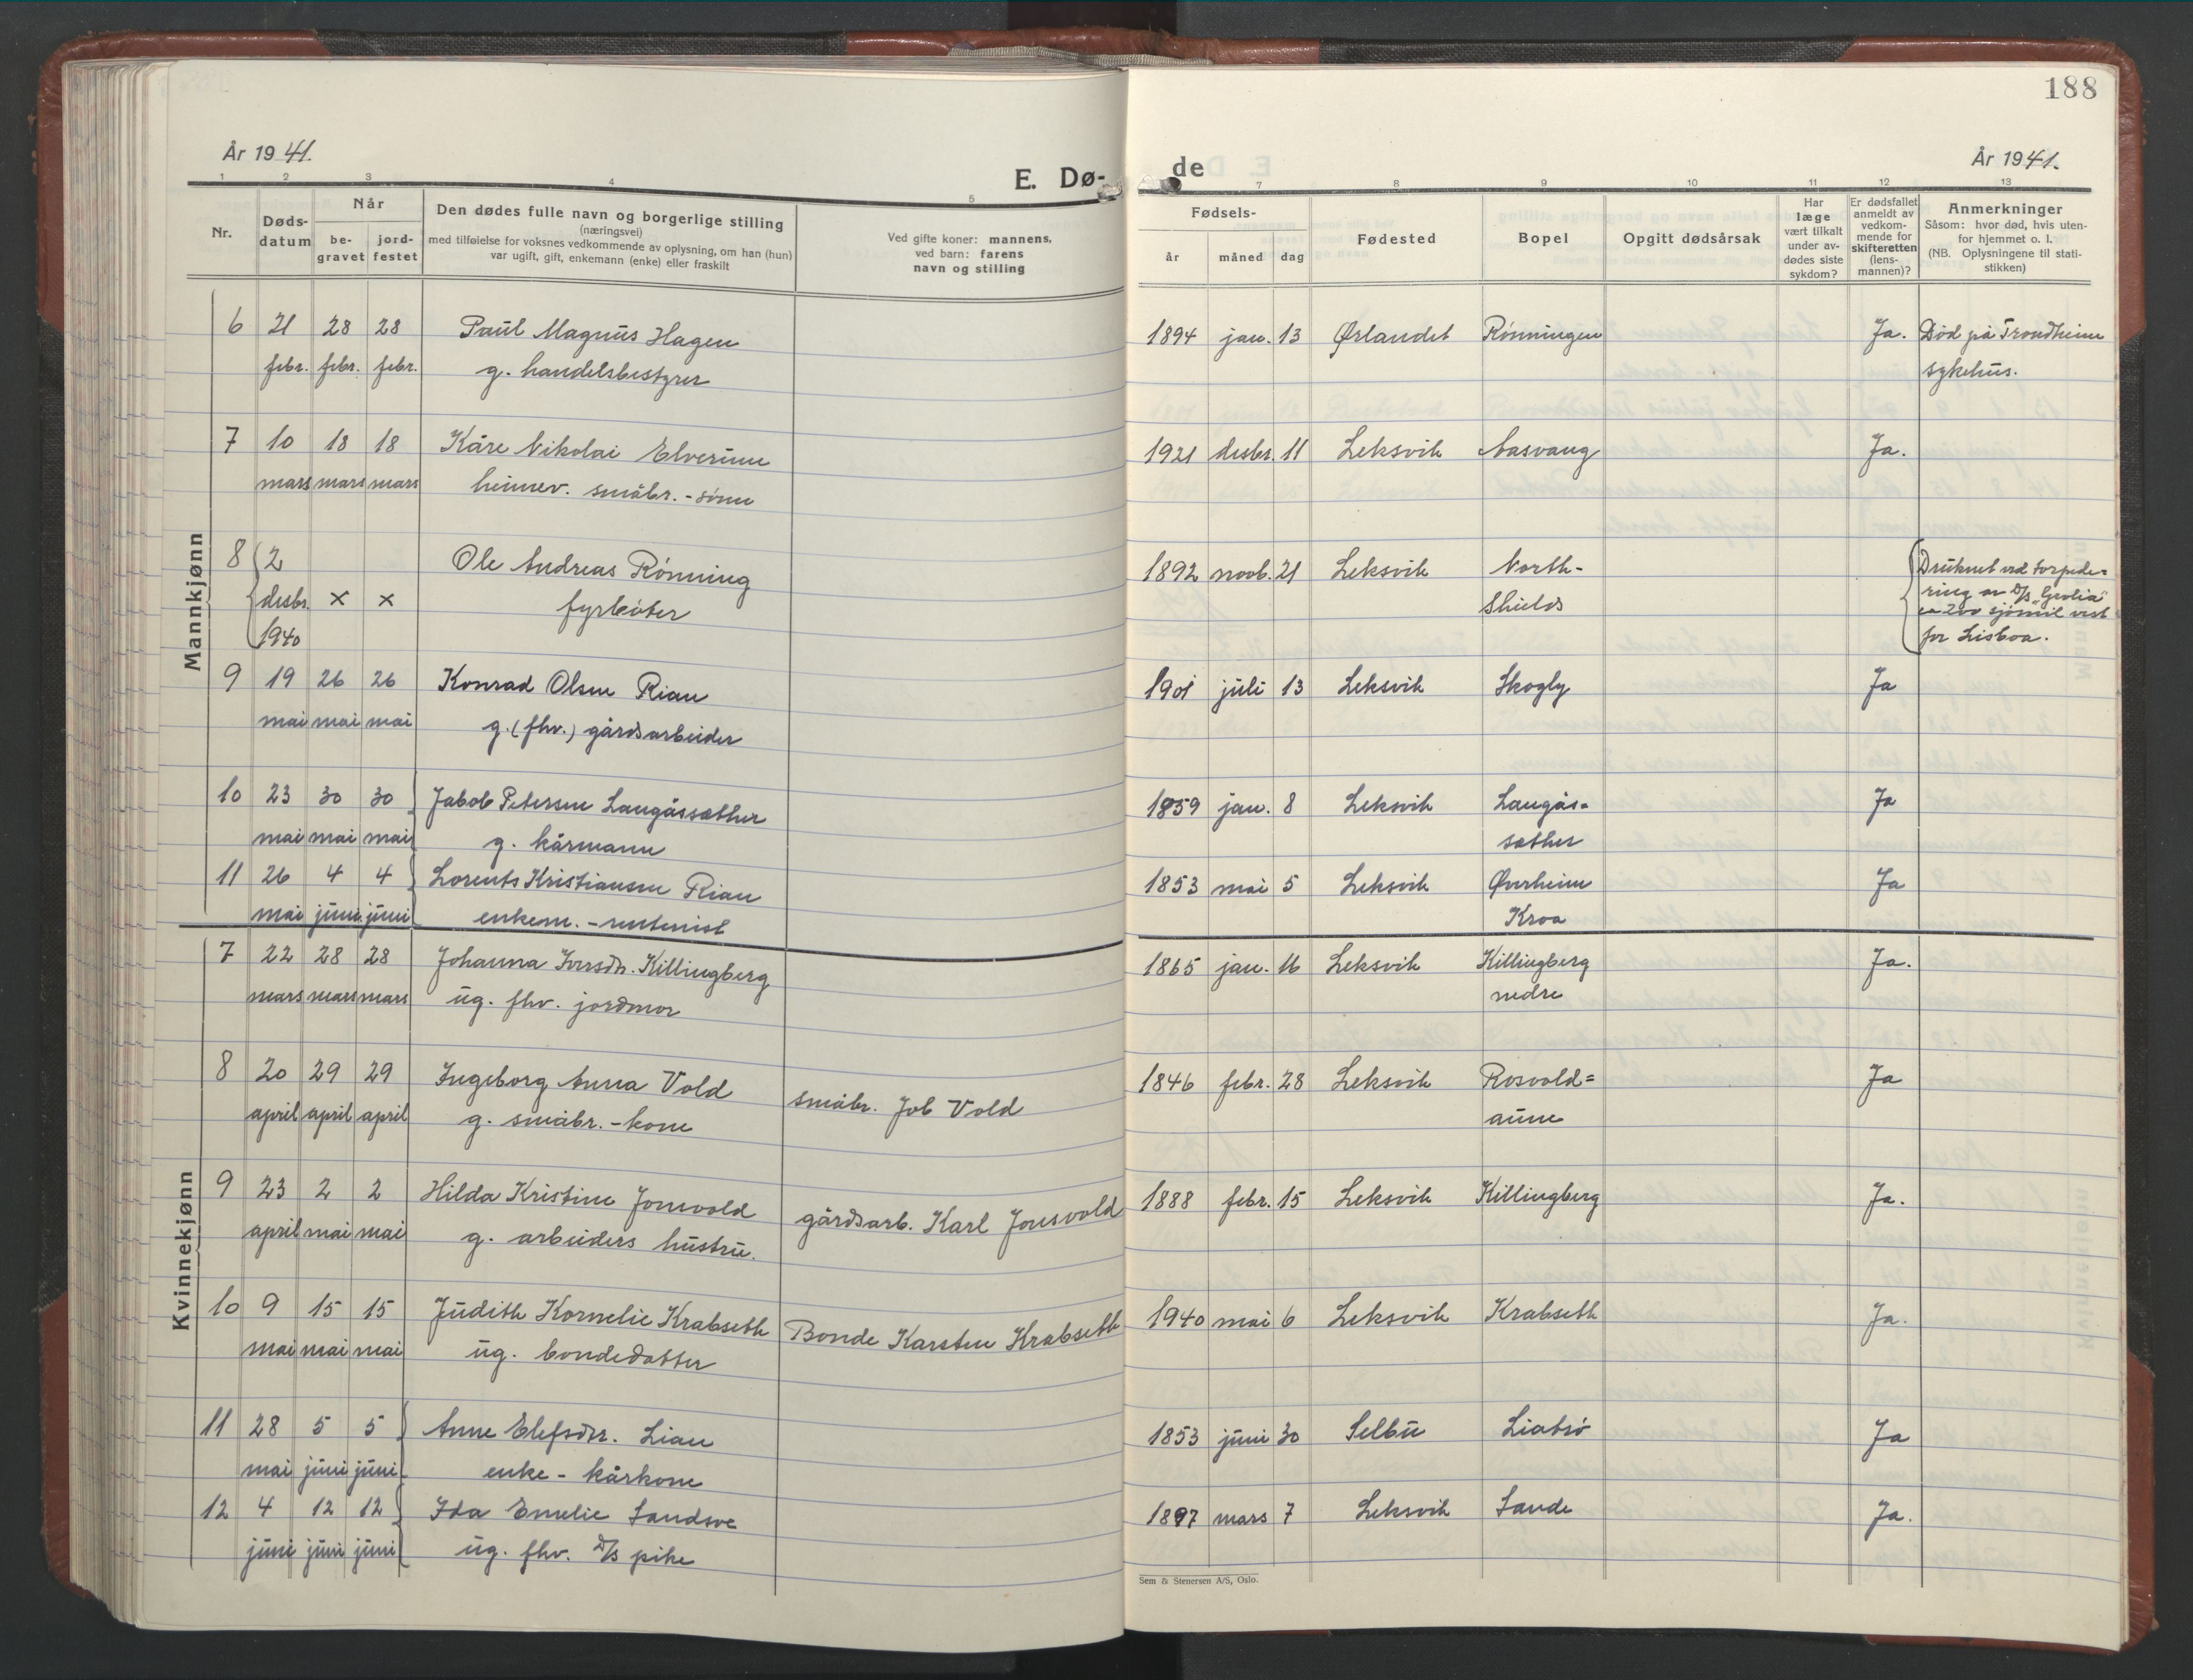 188
År 1941.
År 1941.
E. Dø-
de
1 2 3 4 5
7 8 9 10 11 12 13
Nr.
Døds-
datum
Når
be-
gravet
jord-
festet
Den dødes fulle navn og borgerlige stilling
(næringsvei)
med tilføielse for voksnes vedkommende av oplysning, om han (hun)
var ugift, gift, enkemann (enke) eller fraskilt
Ved gifte koner: mannens,
ved barn: farens
navn og stilling
Fødsels-
år måned dag
Fødested
Bopel
Opgitt dødsårsak
Har
læge
vært tilkalt
under av-
dødes siste
sykdom?
Er dødsfallet
anmeldt av
vedkom-
mende for
skifteretten
(lens-
mannen)?
Anmerkninger
Såsom: hvor død, hvis uten-
for hjemmet o. l.
(NB. Oplysningene til stati-
stikken)
Mannkjønn
6 21 28 28 Paul Magnus Hagen 1894 jan. 13 Ørlandet Rønningen Ja. Død på Trondheim
febr. febr. febr. g. handelsbestyrer sykehus.
7 10 18 18 Kåre Nikolai Elverum 1921 desbr. 11 Leksvik Aasvang Ja.
mars mars mars heimev. småbr. - sønn
8 2 Ole Andreas Rønning 1892 novb. 21 Leksvik North- Druknet ved torpede=
desbr. x x fyrbøter Shields ring av D/S
1940 ca 200 sjømil vest
for Lisboa.
9 19 26 26 Konrad Olsen Rian 1901 juli 13 Leksvik Skogly Ja
mai mai mai g. (fhv.) gårdsarbeider
10 23 30 30 Jakob Petersen Langåssæther 1859 jan. 8 Leksvik Langås= Ja
mai mai mai g. kårmann sæther
11 26 4 4 Lorents Kristiansen Rian 1853 mai 5 Leksvik Øverheim Ja
mai juni juni enkem. - rentenist Kroa
Kvinnekjønn
7 22 28 28 Johanna Iversdtr. Killingberg 1865 jan. 16 Leksvik Killingberg Ja.
mars mars mars ug. fhv. jordmor nedre
8 20 29 29 Ingeborg Anna Vold småbr. Job Vold 1846 febr. 28 Leksvik Rosvold= Ja
april april april g. småbr. - kone aune
9 23 2 2 Hilda Kristine Jonsvold gårdsarb. Karl Jonsvold 1888 febr. 15 Leksvik Killingberg Ja.
april mai mai g. arbeiders hustru.
10 9 15 15 Judith Kornelie Krabseth Bonde Karsten Krabseth 1940 mai 6 Leksvik Krabseth Ja.
mai mai mai ug. bondedatter
11 28 5 5 Anne Elefsdtr. Lian 1853 juni 30 Selbu Liabø Ja
mai juni juni enke - kårkone
12 4 12 12 Ida Emelie Sandsve 1897 mars 7 Leksvik Sande Ja.
juni juni juni ug. fhv. D/S pike
Sem & Stenersen A/S, Oslo.